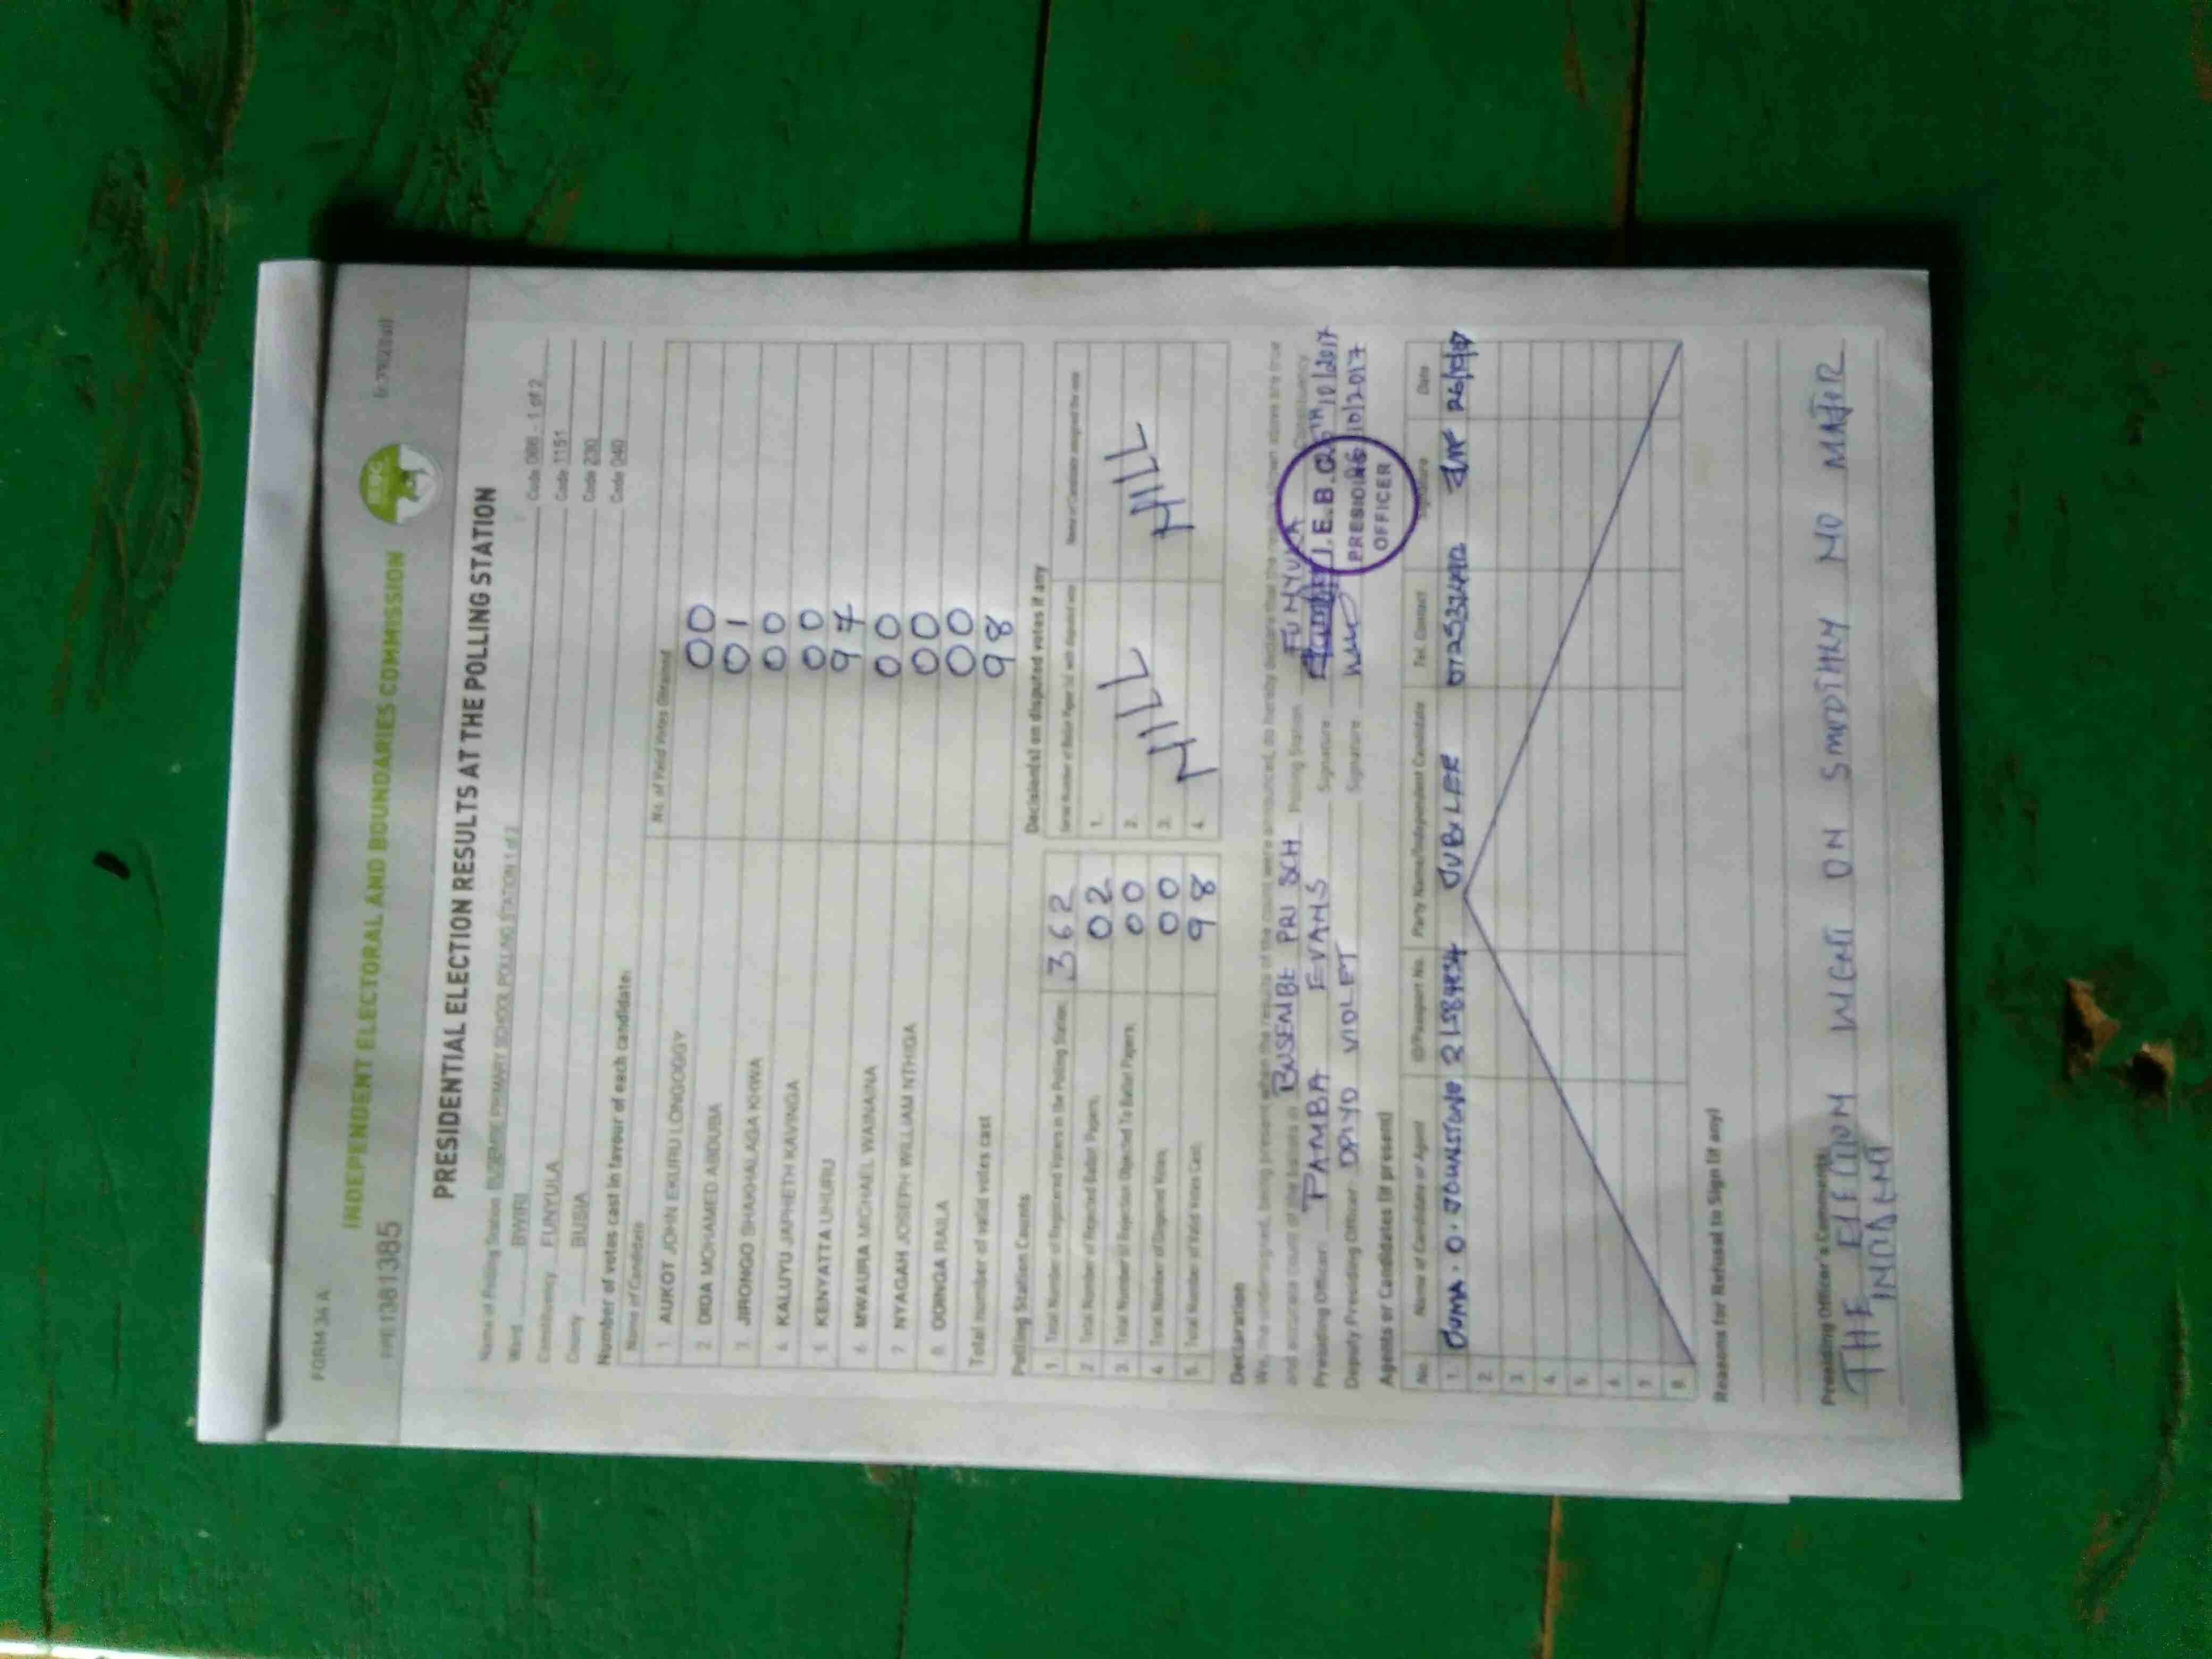 FORM 34 A
INDEPENDENT ELECTORAL AND BOUNDARIES COMMISSION
PRESIDENTIAL ELECTION RESULTS AT THE POLLING STATION
Name of Polling Station BUSEMBE PRIMARY SCHOOL POLLING STATION 1 of 2 Code 086 - 1 of 2
Ward BWIRI Code 1151
Constituency FUNYULA Code 230
County BUSIA Code 040
Number of votes cast in favour of each candidate:
Name of Candidate No. of Valid Votes Obtained
1. AUKOT JOHN EKURU LONGOGGY 00
2. DIDA MOHAMED ABDUBA 01
3. JIRONGO SHAKHALAGA KHWA 00
4. KALUYU JAPHETH KAVINGA 00
5. KENYATTA UHURU 97
6. MWAURA MICHAEL WAINAINA 00
7. NYAGAH JOSEPH WILLIAM NTHIGA 00
8. ODINGA RAILA 00
Total number of valid votes cast 98
Polling Station Counts
1. Total Number of Registered Voters in the Polling Station; 362
2. Total Number of Rejected Ballot Papers; 02
3. Total Number of Rejection Objected To Ballot Papers; 00
4. Total Number of Disputed Votes; 00
5. Total Number of Valid Votes Cast; 98
Decision(s) on disputed votes if any
Serial Number of Ballot Paper (s) with disputed vote Name of Candidate assigned the vote
1.
2. NILL NILL
3.
4. NILL
Declaration
We, the undersigned, being present when the results of the count were announced, do hereby declare that the results shown above are true
and accurate count of the ballots in BUSENBE PRI SCH Polling Station FUNYULA Constituency
Presiding Officer: PAMBA EVANS Signature 10/2017
Deputy Presiding Officer: OPIYO VIOLET Signature 10/2017
I.E.B.C
PRESIDING
OFFICER
Agents or Candidates (if present)
No. Name of Candidate or Agent ID/Passport No. Party Name/Independent Candidate Tel. Contact Signature Date
1. JUMA.O. JUBILEE
2.
3.
4.
5.
6.
7.
8.
Reasons for Refusal to Sign (if any)
Presiding Officer's Comments
THE ELECTION WENT ON SMOOTHLY NO MAJOR
INDDENT